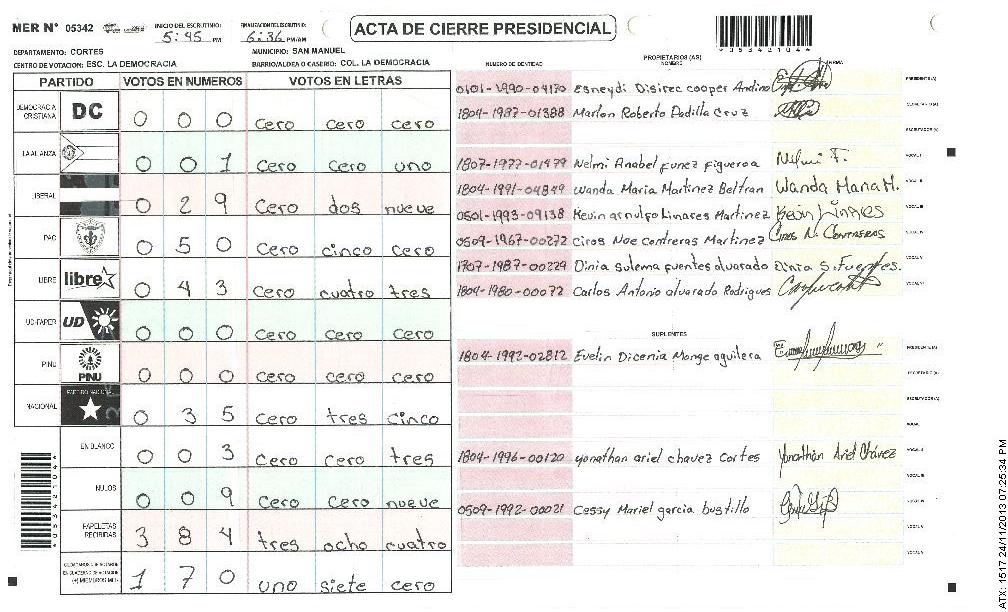 MER Nº 05342 INICIO DEL ESCRUTINIO: 5:45 PM FINALIZACION DEL ESCRUTINIO: 6:36 PM/AM
ACTA DE CIERRE PRESIDENCIAL
DEPARTAMENTO: CORTES MUNICIPIO: SAN MANUEL
CENTRO DE VOTACION: ESC. LA DEMOCRACIA BARRIO/ALDEA O CASERIO: COL. LA DEMOCRACIA
PARTIDO VOTOS EN NUMEROS VOTOS EN LETRAS
DEMOCRACIA CRISTIANA DC 0 0 0 cero cero cero
LA ALIANZA 0 0 1 cero cero uno
LIBERAL 0 2 9 cero dos nueve
PAC 0 5 0 cero cinco cero
LIBRE libre 0 4 3 cero cuatro tres
UD-FAPER UD 0 0 0 cero cero cero
PINU PINU 0 0 0 cero cero cero
NACIONAL PARTIDO NACIONAL 0 3 5 cero tres cinco
EN BLANCO 0 0 3 cero cero tres
NULOS 0 0 9 cero cero nueve
PAPELETAS RECIBIDAS 3 8 4 tres ocho cuatro
1 7 0 uno siete cero
PROPIETARIOS (AS)
NUMERO DE IDENTIDAD NOMBRE FIRMA
0101-1990-04170 Esneydi Disirec cooper Andino PRESIDENTE (A)
1804-1987-01388 Marlon Roberto Padilla Cruz SECRETARIO (A)
ESCRUTADOR (A)
1807-1977-01479 Nelmi Anabel funez figueroa Nelmi F. VOCAL I
1804-1991-04849 Wanda Maria Martinez Beltran Wanda Maria M. VOCAL II
0501-1993-09138 Kevin arnulfo Linares Martinez Kevin Linares VOCAL III
0509-1967-00272 Ciros Noe contreras Martinez Ciros N. Contreras VOCAL IV
1707-1987-00229 Dinia Sulema fuentes alvarado Dinia S. Fuentes. VOCAL V
1804-1980-00072 Carlos Antonio alvarado Rodrigues VOCAL VI
SUPLENTES
1804-1992-02812 Evelin Dicenia Monge aguilera PRESIDENTE (A)
SECRETARIO (A)
ESCRUTADOR (A)
VOCAL I
1804-1996-00120 yonathan ariel chavez Cortes Yonathan Ariel Chávez VOCAL II
VOCAL III
0509-1992-00021 Cessy Mariel garcia bustillo VOCAL IV
VOCAL V
VOCAL VI
ATX: 1517 24/11/2013 07:25:34 PM